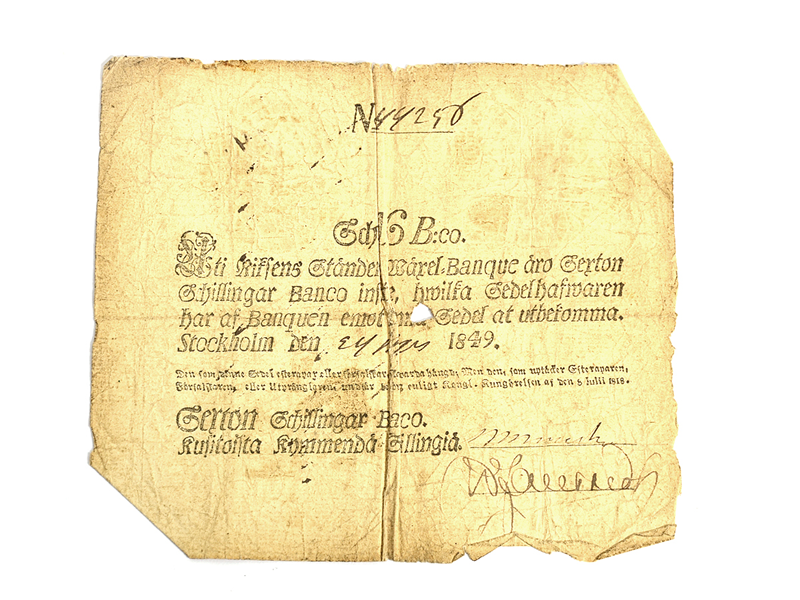 N 44256
Sch 16 B:co.
Uti Riksens Ständer Wäxel-Banque äro Sexton
Schillingar Banco inst., hwilka Sedelhafwaren
har af Banquen emot Sedel at utbekomma.
Stockholm den 24 1849.
Den som denne Sedel efterapar eller skal warda hängd; Men den, som uptäcker Efteraparen,
Förfalskaren, eller enligt Kongl. Kungörelsen af den 8 Julii 1818.
Sexton Schillingar B:co.
Kuusitoista Kymmendä Sillingiä.